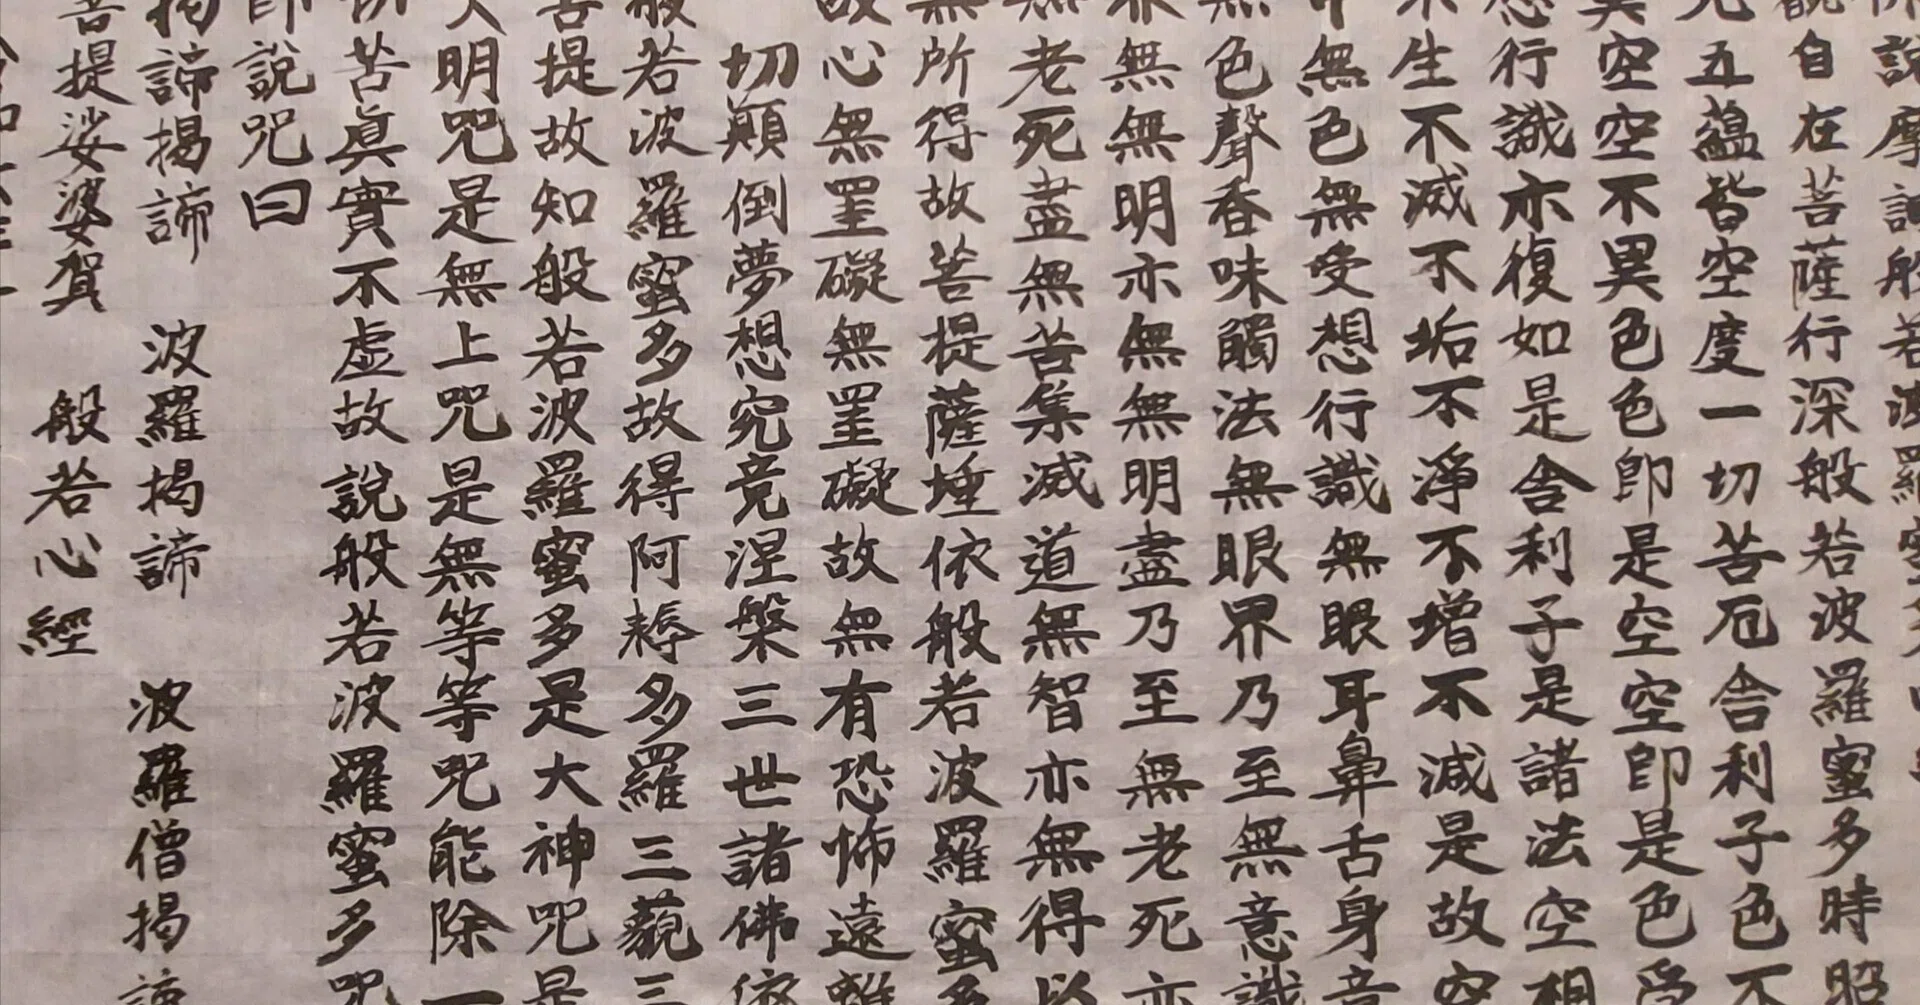 說摩訶般若波羅蜜多
觀自在菩薩行深般若波羅蜜多時照
見五蘊皆空度一切苦厄舍利子色不
異空空不異色色卽是空空卽是色受
想行識亦復如是舍利子是諸法空相
不生不滅不垢不淨不增不減是故空
中無色無受想行識無眼耳鼻舌身意
無色聲香味觸法無眼界乃至無意識
界無無明亦無無明盡乃至無老死亦
無老死盡無苦集滅道無智亦無得以
無所得故菩提薩埵依般若波羅蜜多
故心無罣礙無罣礙故無有恐怖遠離
切顚倒夢想究竟涅槃三世諸佛依
般若波羅蜜多故得阿耨多羅三藐三
菩提故知般若波羅蜜多是大神咒是
大明咒是無上咒是無等等咒能除一
切苦眞實不虛故說般若波羅蜜多咒
卽說咒曰
揭諦揭諦 波羅揭諦 波羅僧揭諦
菩提娑婆賀 般若心經